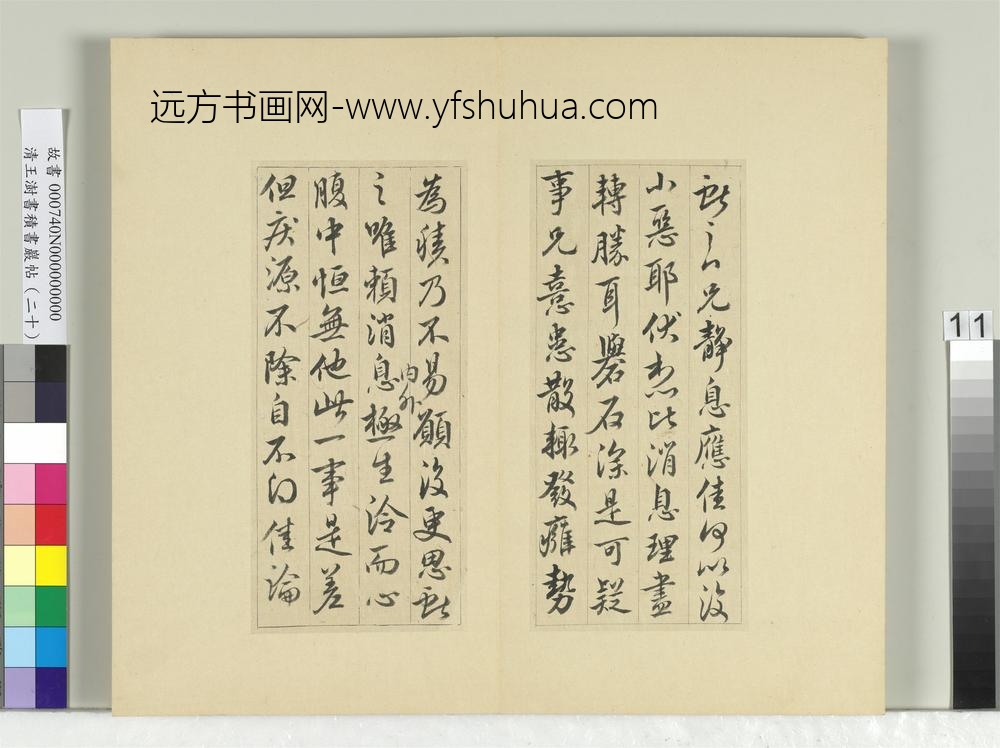 远方书画网-www.yfshuhua.com
獻之白兄靜息應佳何以復
小惡耶伏想比消息理盡
轉勝耳礜石深是可疑
事兄憙患散輒發癰勢
為積乃不易願復更思獻
之唯賴消息内外極生冷而心
腹中恒無他此一事是差
但疾源不除自不得佳論
故書 000740N000000000
清王澍書積書巖帖（二十）
11